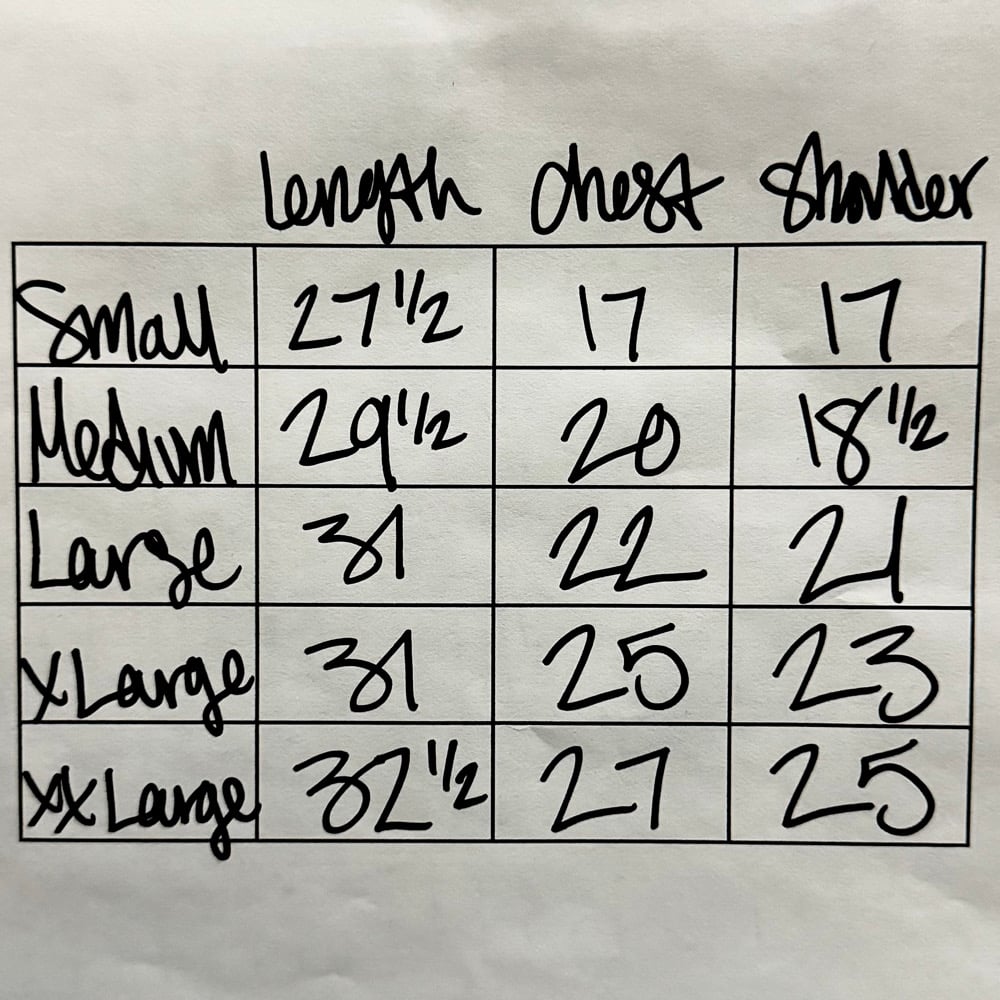 length chest Shoulder
Small 27 1/2 17 17
Medium 29 1/2 20 18 1/2
Large 31 22 21
X Large 31 25 23
XX Large 32 1/2 27 25